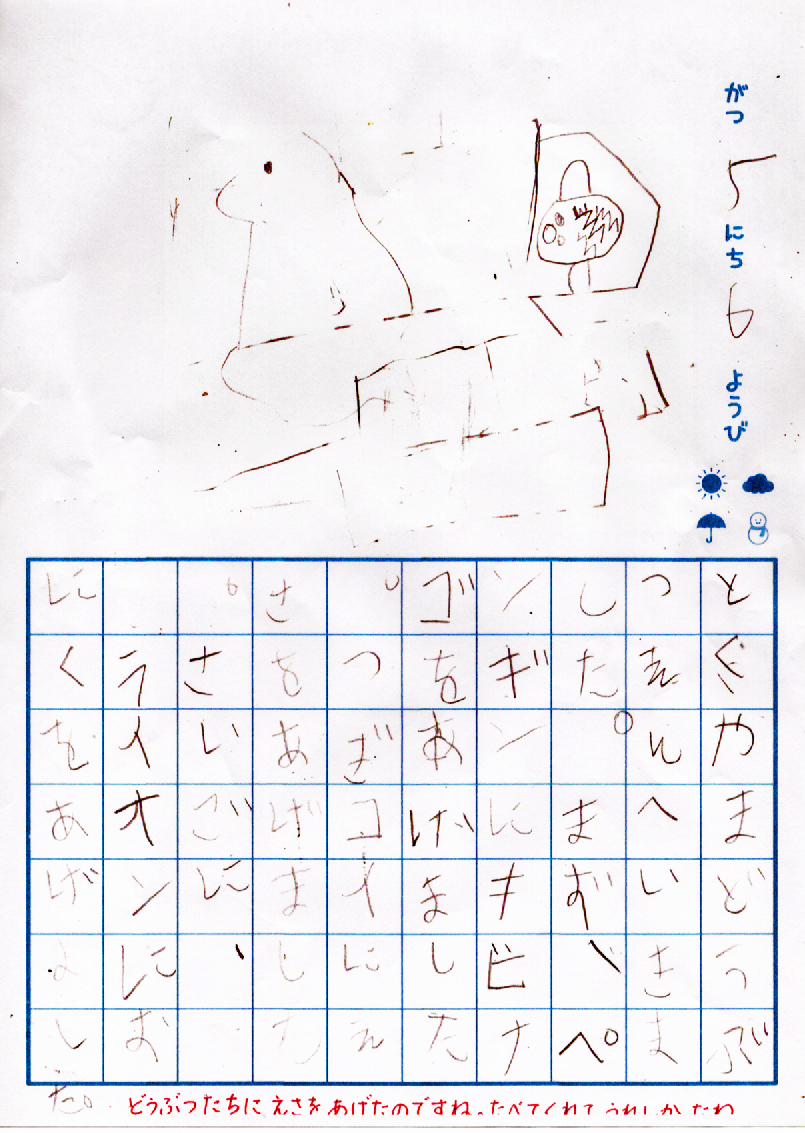 がつ 5 にち 6 ようび
とぐやまどうぶ
つえんへいきま
した。まず、ぺ
ンギンにキビナ
ゴをあげました
。つぎコイにえ
さをあげました
。さいごに、
ライオンにお
にくをあげました。
どうぶつたちに えさを あげたのですね。たべてくれて うれしかったね